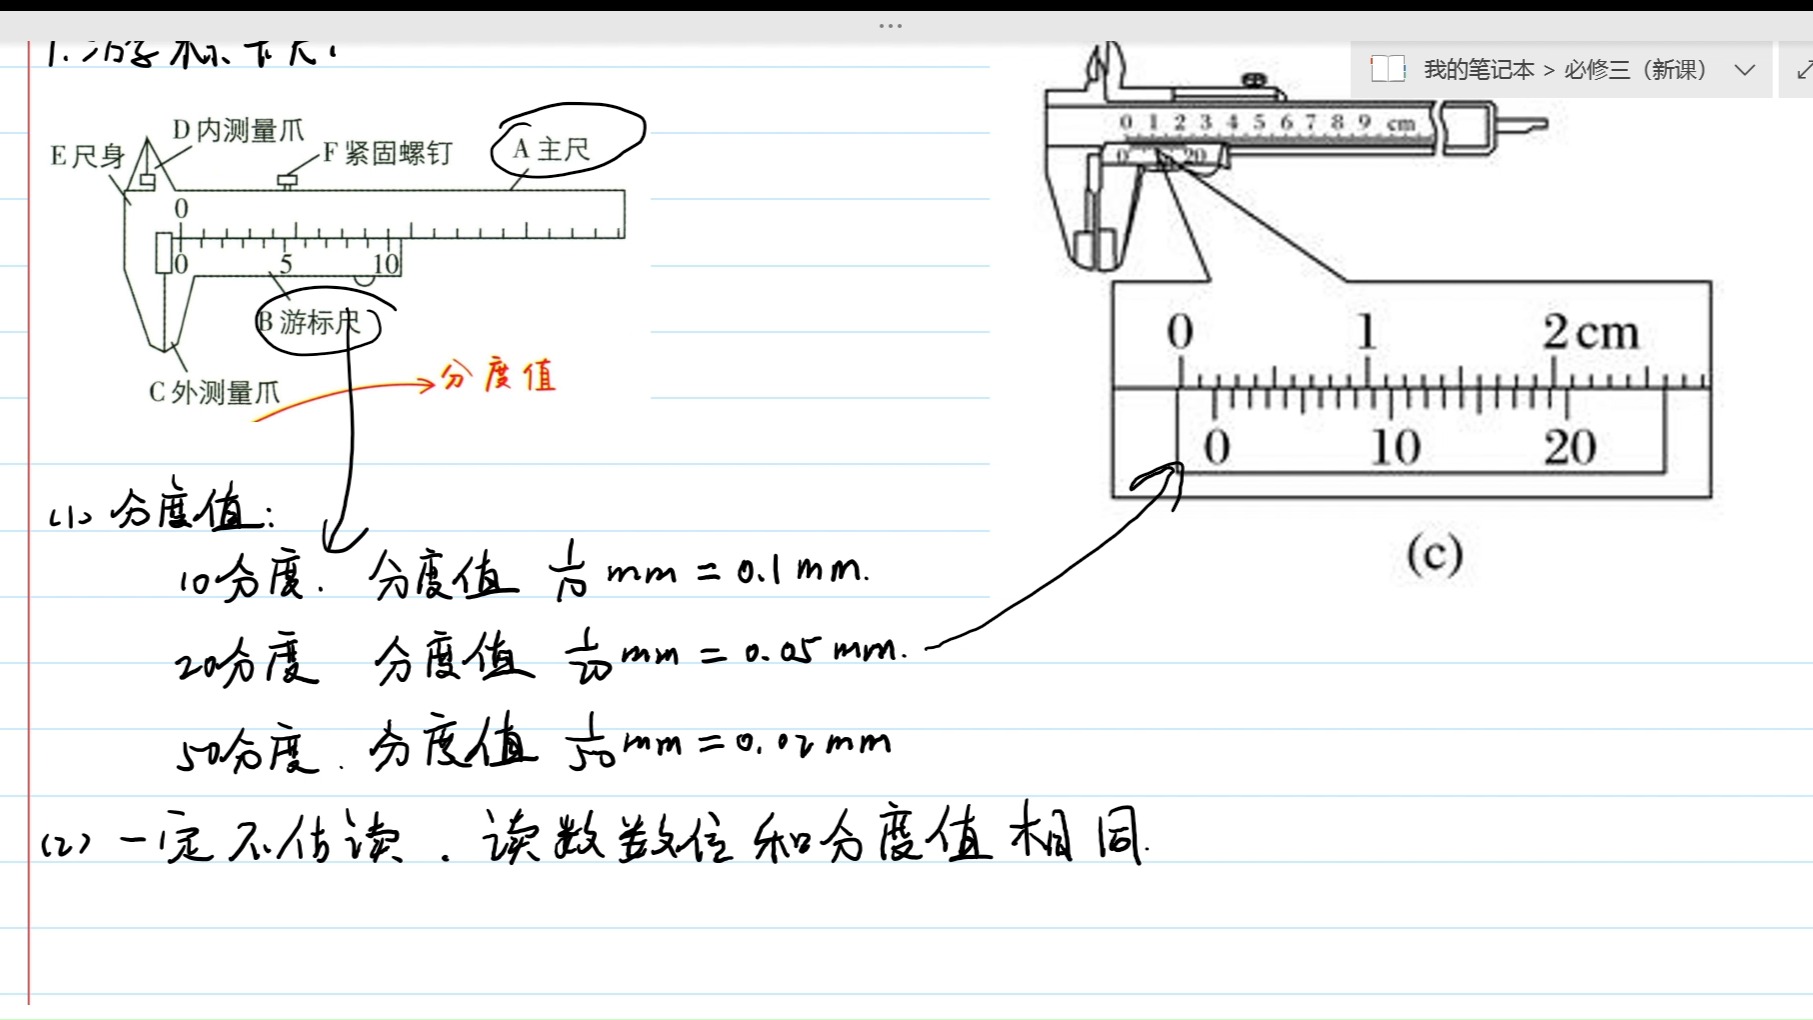 1. 游标卡尺:
我的笔记本 > 必修三（新课）
D 内测量爪
E 尺身
F 紧固螺钉
A 主尺
0
0 5 10
B 游标尺
分度值
C 外测量爪
0 1 2 3 4 5 6 7 8 9 cm
0 20
0 1 2 cm
0 10 20
(c)
(1) 分度值:
10分度. 分度值 1/10 mm = 0.1 mm.
20分度 分度值 1/20 mm = 0.05 mm.
50分度. 分度值 1/50 mm = 0.02 mm
(2) 一定不估读. 读数数位和分度值相同.